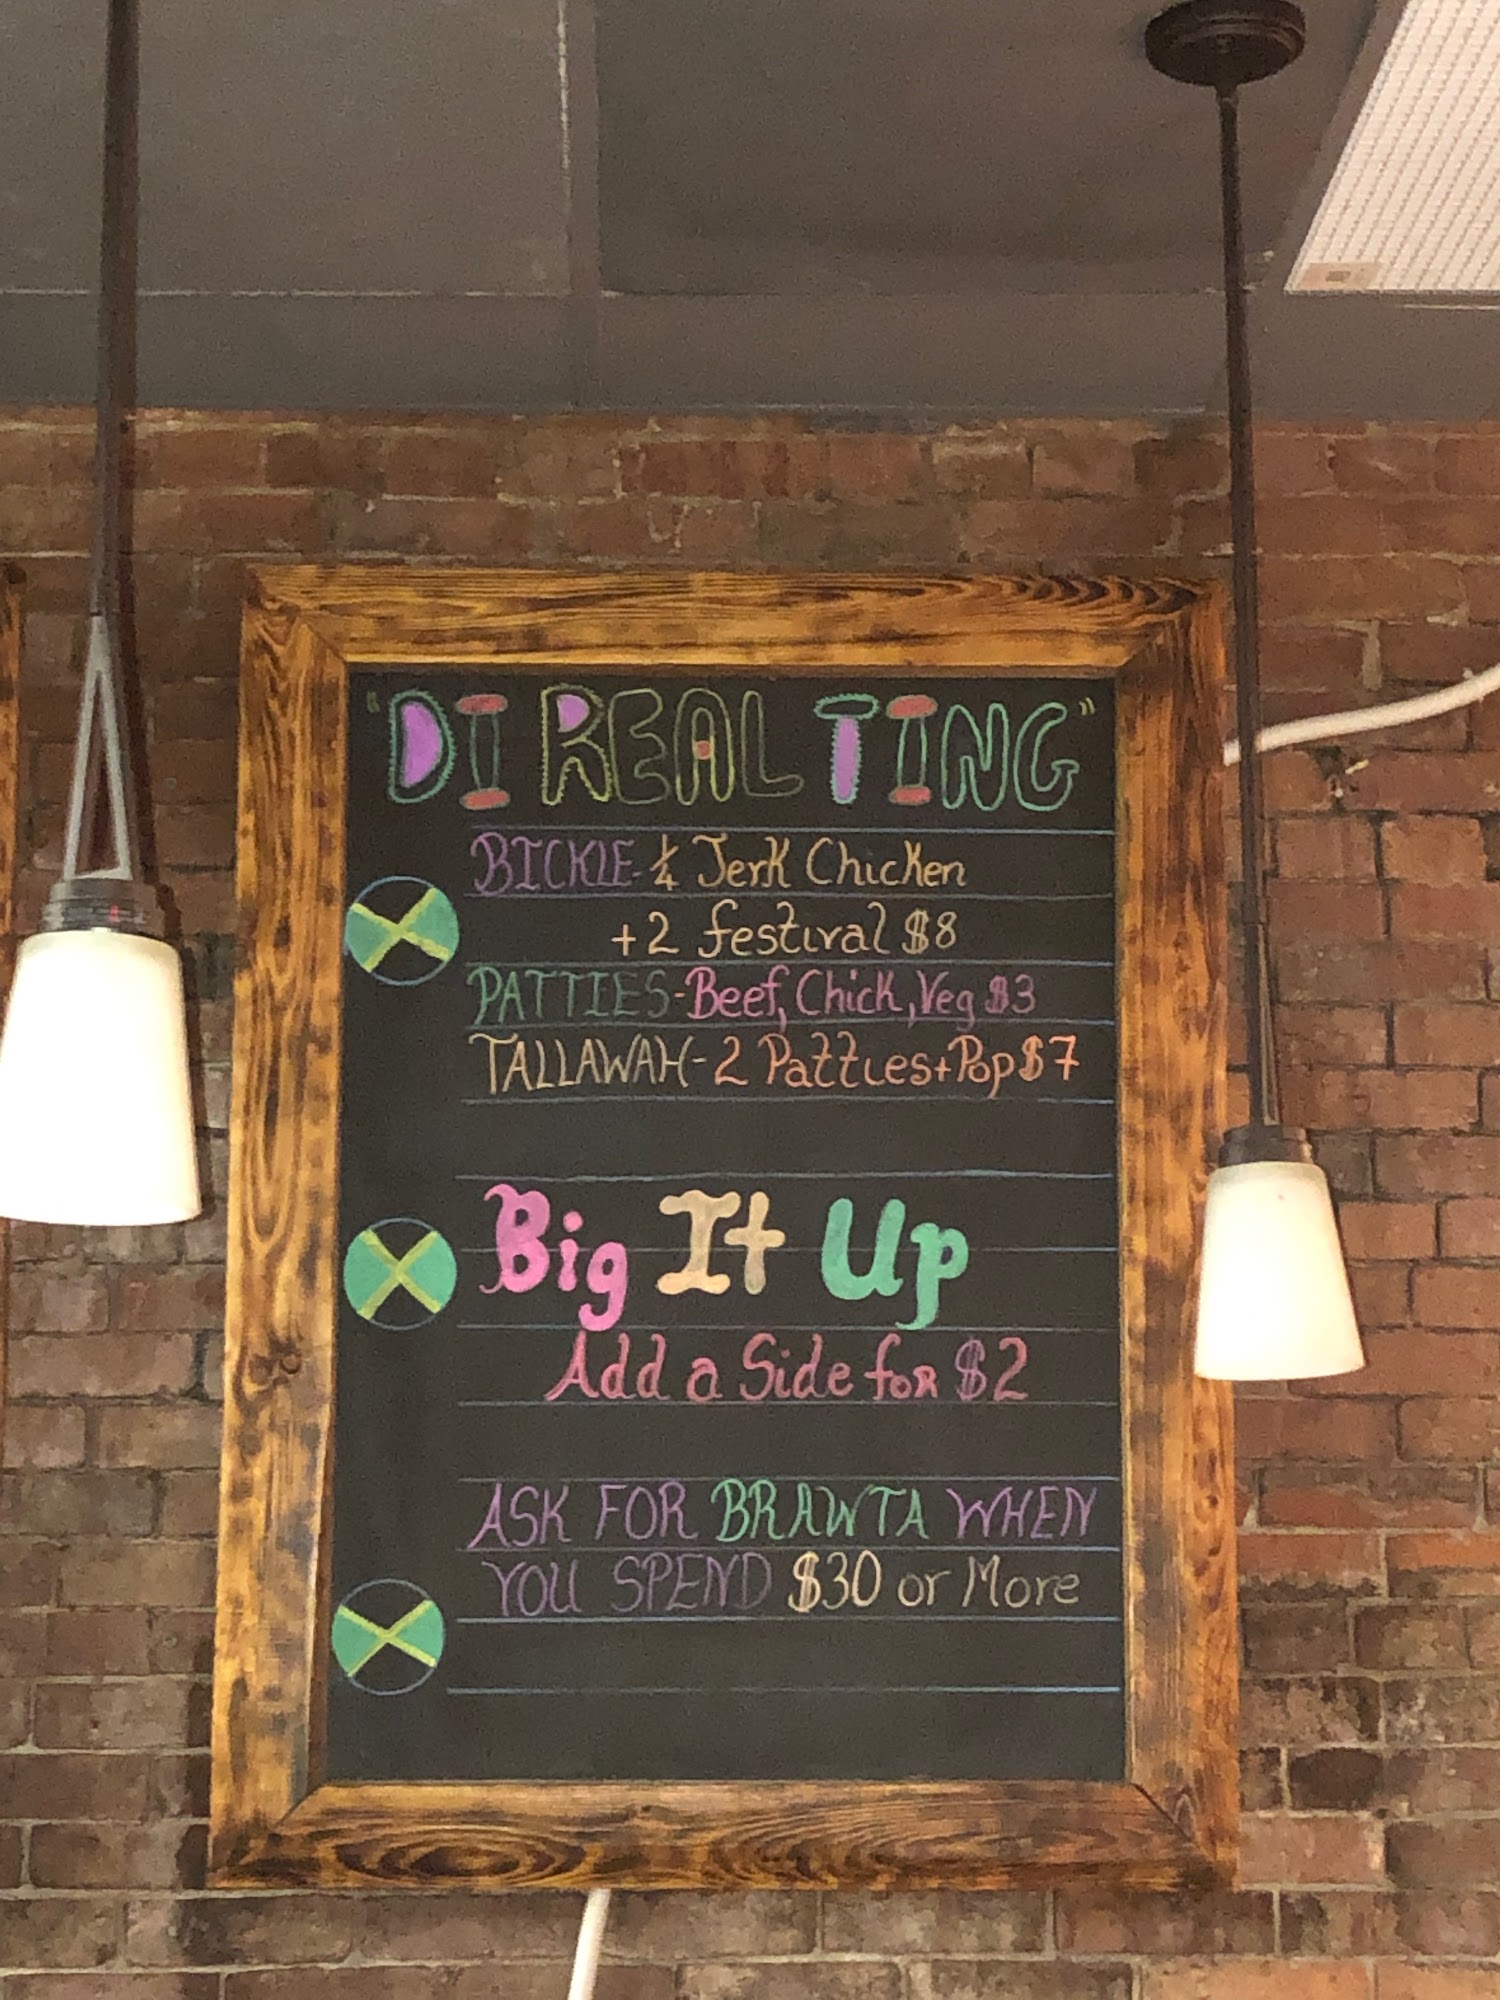 "DI REAL TING"
BICKLE- 1/4 Jerk Chicken
+2 festival $8
PATTIES-Beef, Chick, Veg $3
TALLAWAH-2 Patties+Pop $7
Big It Up
Add a Side for $2
ASK FOR BRAWTA WHEN
YOU SPEND $30 or More